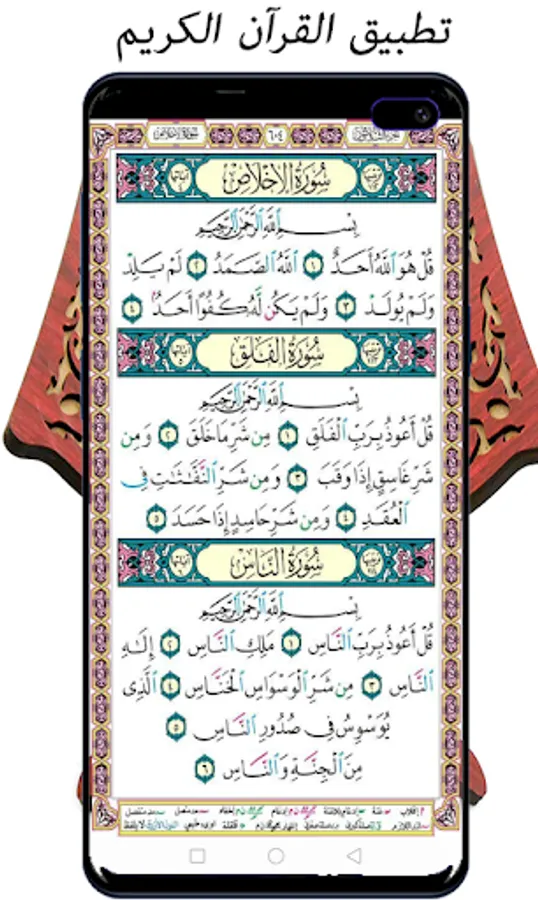 تطبيق القرآن الكريم
سورة الإخلاص
٦٠٤
سُورَةُ الإِخْلَاصِ
بِسْمِ اللَّهِ الرَّحْمَنِ الرَّحِيمِ
قُلْ هُوَ اللَّهُ أَحَدٌ ١ اللَّهُ الصَّمَدُ ٢ لَمْ يَلِدْ
وَلَمْ يُولَدْ ٣ وَلَمْ يَكُن لَّهُ كُفُوًا أَحَدٌ ٤
سُورَةُ الفَلَقِ
بِسْمِ اللَّهِ الرَّحْمَنِ الرَّحِيمِ
قُلْ أَعُوذُ بِرَبِّ الْفَلَقِ ١ مِن شَرِّ مَا خَلَقَ ٢ وَمِن
شَرِّ غَاسِقٍ إِذَا وَقَبَ ٣ وَمِن شَرِّ النَّفَّٰثَٰتِ فِي
الْعُقَدِ ٤ وَمِن شَرِّ حَاسِدٍ إِذَا حَسَدَ ٥
سُورَةُ النَّاسِ
بِسْمِ اللَّهِ الرَّحْمَنِ الرَّحِيمِ
قُلْ أَعُوذُ بِرَبِّ النَّاسِ ١ مَلِكِ النَّاسِ ٢ إِلَٰهِ
النَّاسِ ٣ مِن شَرِّ الْوَسْوَاسِ الْخَنَّاسِ ٤ الَّذِي
يُوَسْوِسُ فِي صُدُورِ النَّاسِ ٥
مِنَ الْجِنَّةِ وَالنَّاسِ ٦